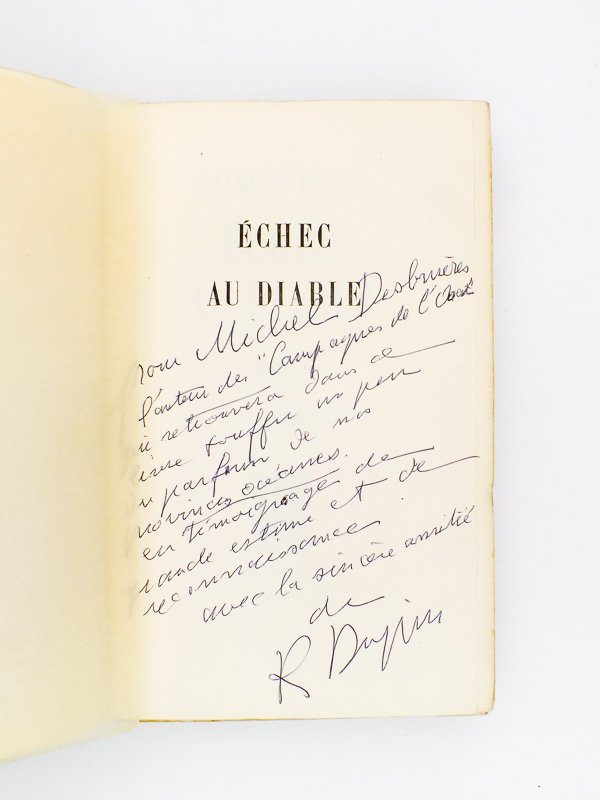 ÉCHEC
AU DIABLE
pour Michel Desbruères
l'auteur des "Campagnes de l'Ouest"
qui retrouvera dans ce
livre touffu un peu
du parfum de nos
provinces océanes.
en témoignage de
grande estime et de
reconnaissance
avec la sincère amitié
de
R Dupin